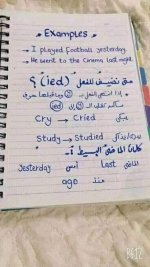 Examples
→ I played football yesterday.
→ He went to the Cinema last night.
متى نضيف للفعل (ied) ؟
* إذا انتهى الفعل بـ y وما قبلها حرف
ساكن تقلب الـ y إلى ied
Cry → Cried يبكي
Study → Studied يدرس/يذاكر
كلمات الماضي البسيط :-
Yesterday أمس Last الماضي
ago منذ